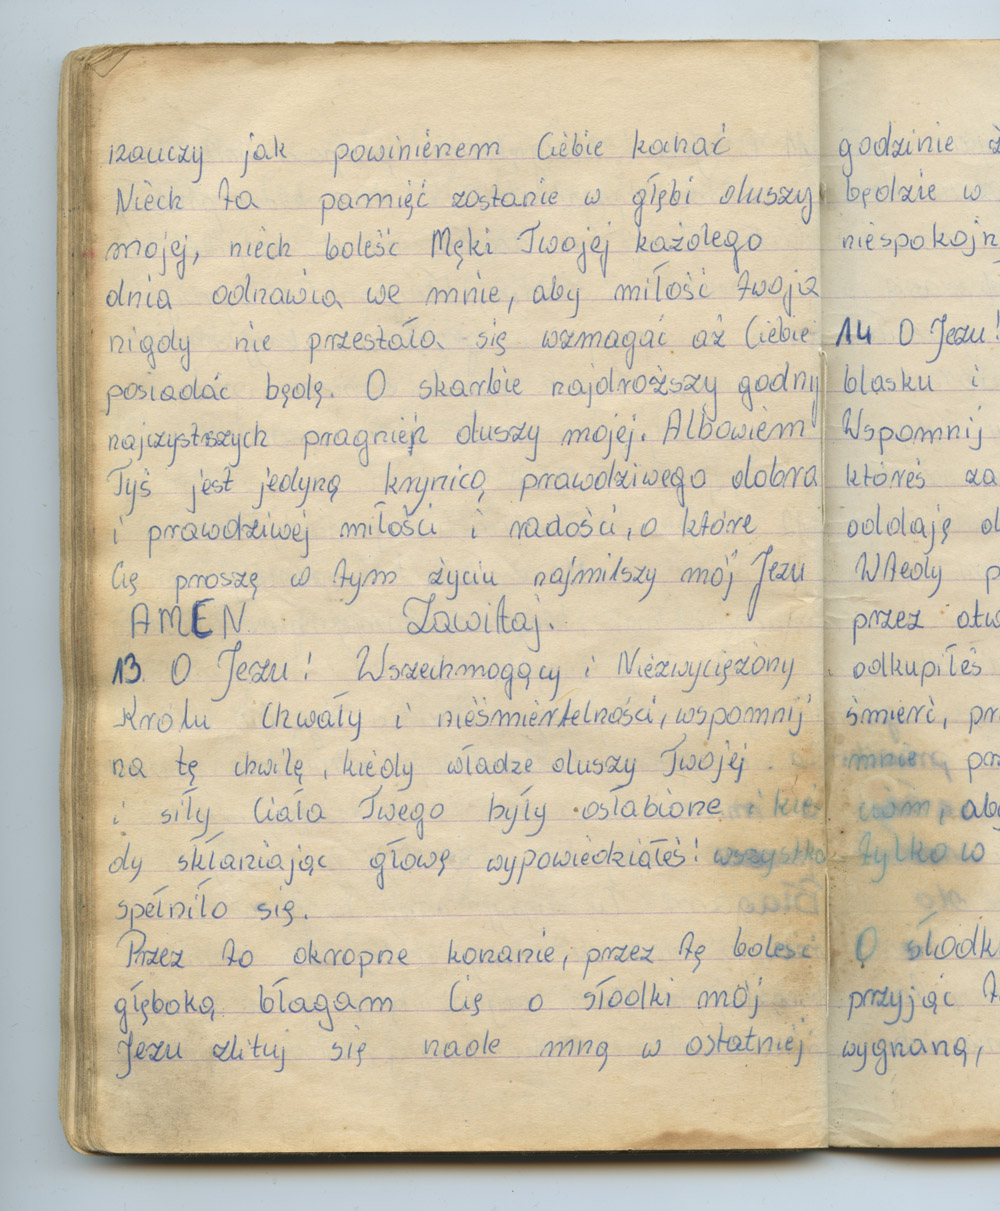 nauczy jak powinienem Ciebie kochać
Niech ta pamięć zostanie w głębi duszy
mojej, niech boleść Męki Twojej każdego
dnia odnawia we mnie, aby miłość twoja
nigdy nie przestała się wzmagać aż Ciebie
posiadać będę. O skarbie najdroższy godny
najczystszych pragnień duszy mojej. Albowiem
Tyś jest jedyną krynicą prawdziwego dobra
i prawdziwej miłości i radości, o które
Cię proszę w tym życiu najmilszy mój Jezu
AMEN Zawitaj.
13. O Jezu! Wszechmogący i Niezwyciężony
Królu Chwały i nieśmiertelności, wspomnij
na tę chwilę, kiedy władze duszy Twojej
i siły Ciała Twego były osłabione i kie
dy skłaniając głowę wypowiedziałeś! wszystko
spełniło się.
Przez to okropne konanie, przez tę boleść
głęboką błagam Cię o słodki mój
Jezu zlituj się nade mną w ostatniej
godzinie
będzie w
niespokojn
14 O Jezu!
blasku i
Wspomnij
któreś za
oddają
Wtedy p
przez otw
odkupiłeś
śmierć, pr
mnie prz
abyś
tylko w
O słodk
przyjąć
wygnaną,